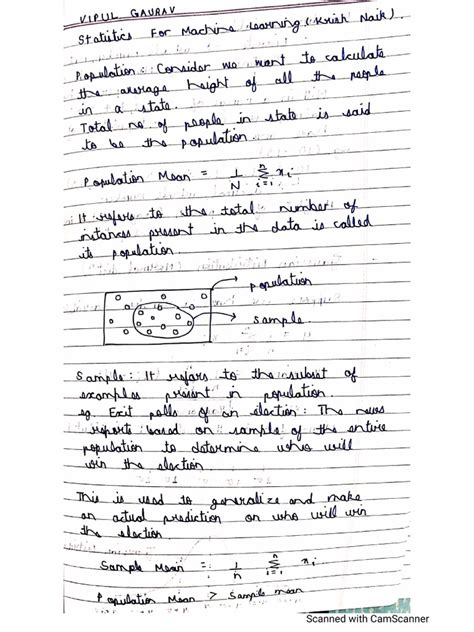 VIPUL GAURAV
Statistics For Machine Learning (Krish Naik).
Population: Consider we want to calculate
the average height of all the people
in a state.
Total no. of people in state is said
to be the population.
Population Mean = 1/N Σ xi
n
i=1
It refers to the total number of
instances present in the data is called
its population.
population
sample
Sample: It refers to the subset of
examples present in population.
eg. Exit polls of an election: The news
reports based on sample of the entire
population to determine who will
win the election.
This is used to generalize and make
an actual prediction on who will win
the election.
Sample Mean = 1/n Σ xi
n
i=1
Population Mean > Sample mean
Scanned with CamScanner